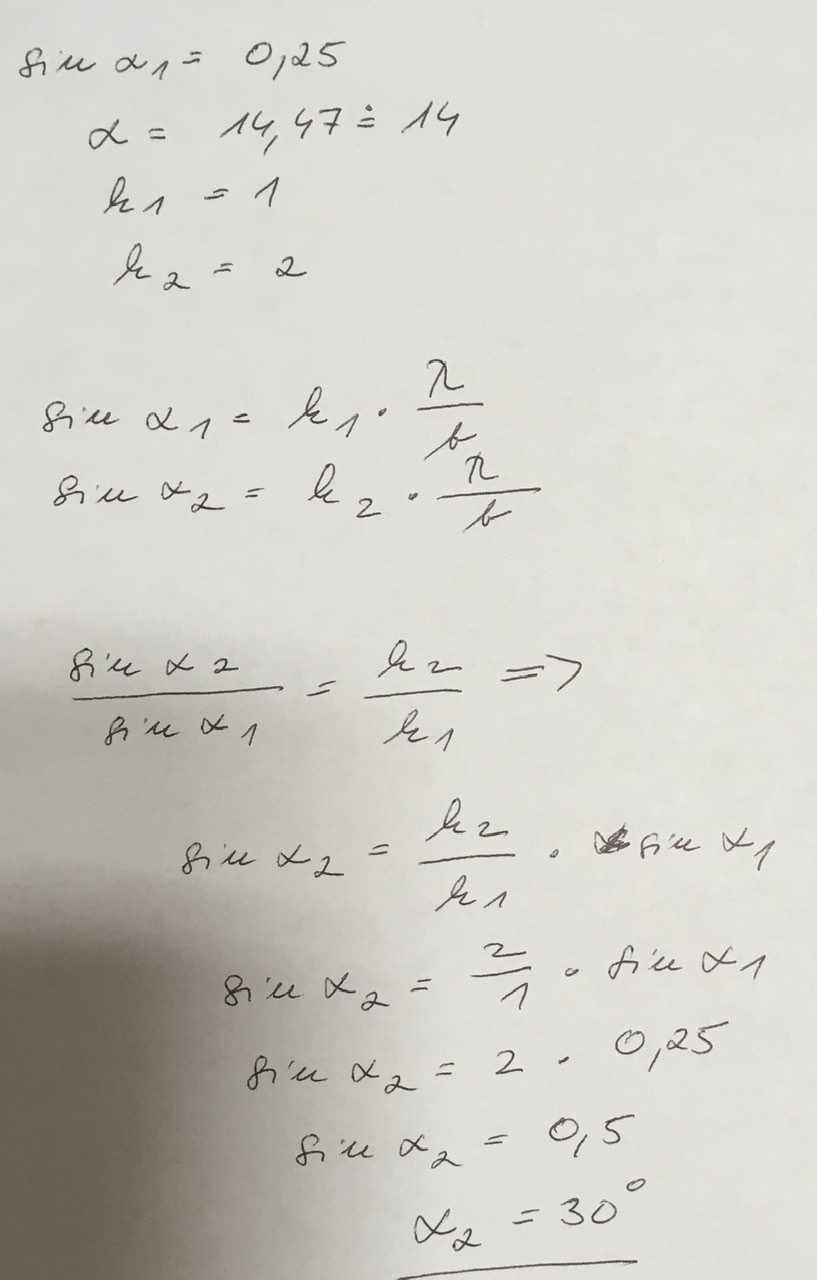 sin α1 = 0,25
α = 14,47 ≐ 14
k1 = 1
k2 = 2
sin α1 = k1 · λ/b
sin α2 = k2 · λ/b
sin α2 / sin α1 = k2 / k1 =>
sin α2 = k2/k1 · sin α1
sin α2 = 2/1 · sin α1
sin α2 = 2 · 0,25
sin α2 = 0,5
α2 = 30°